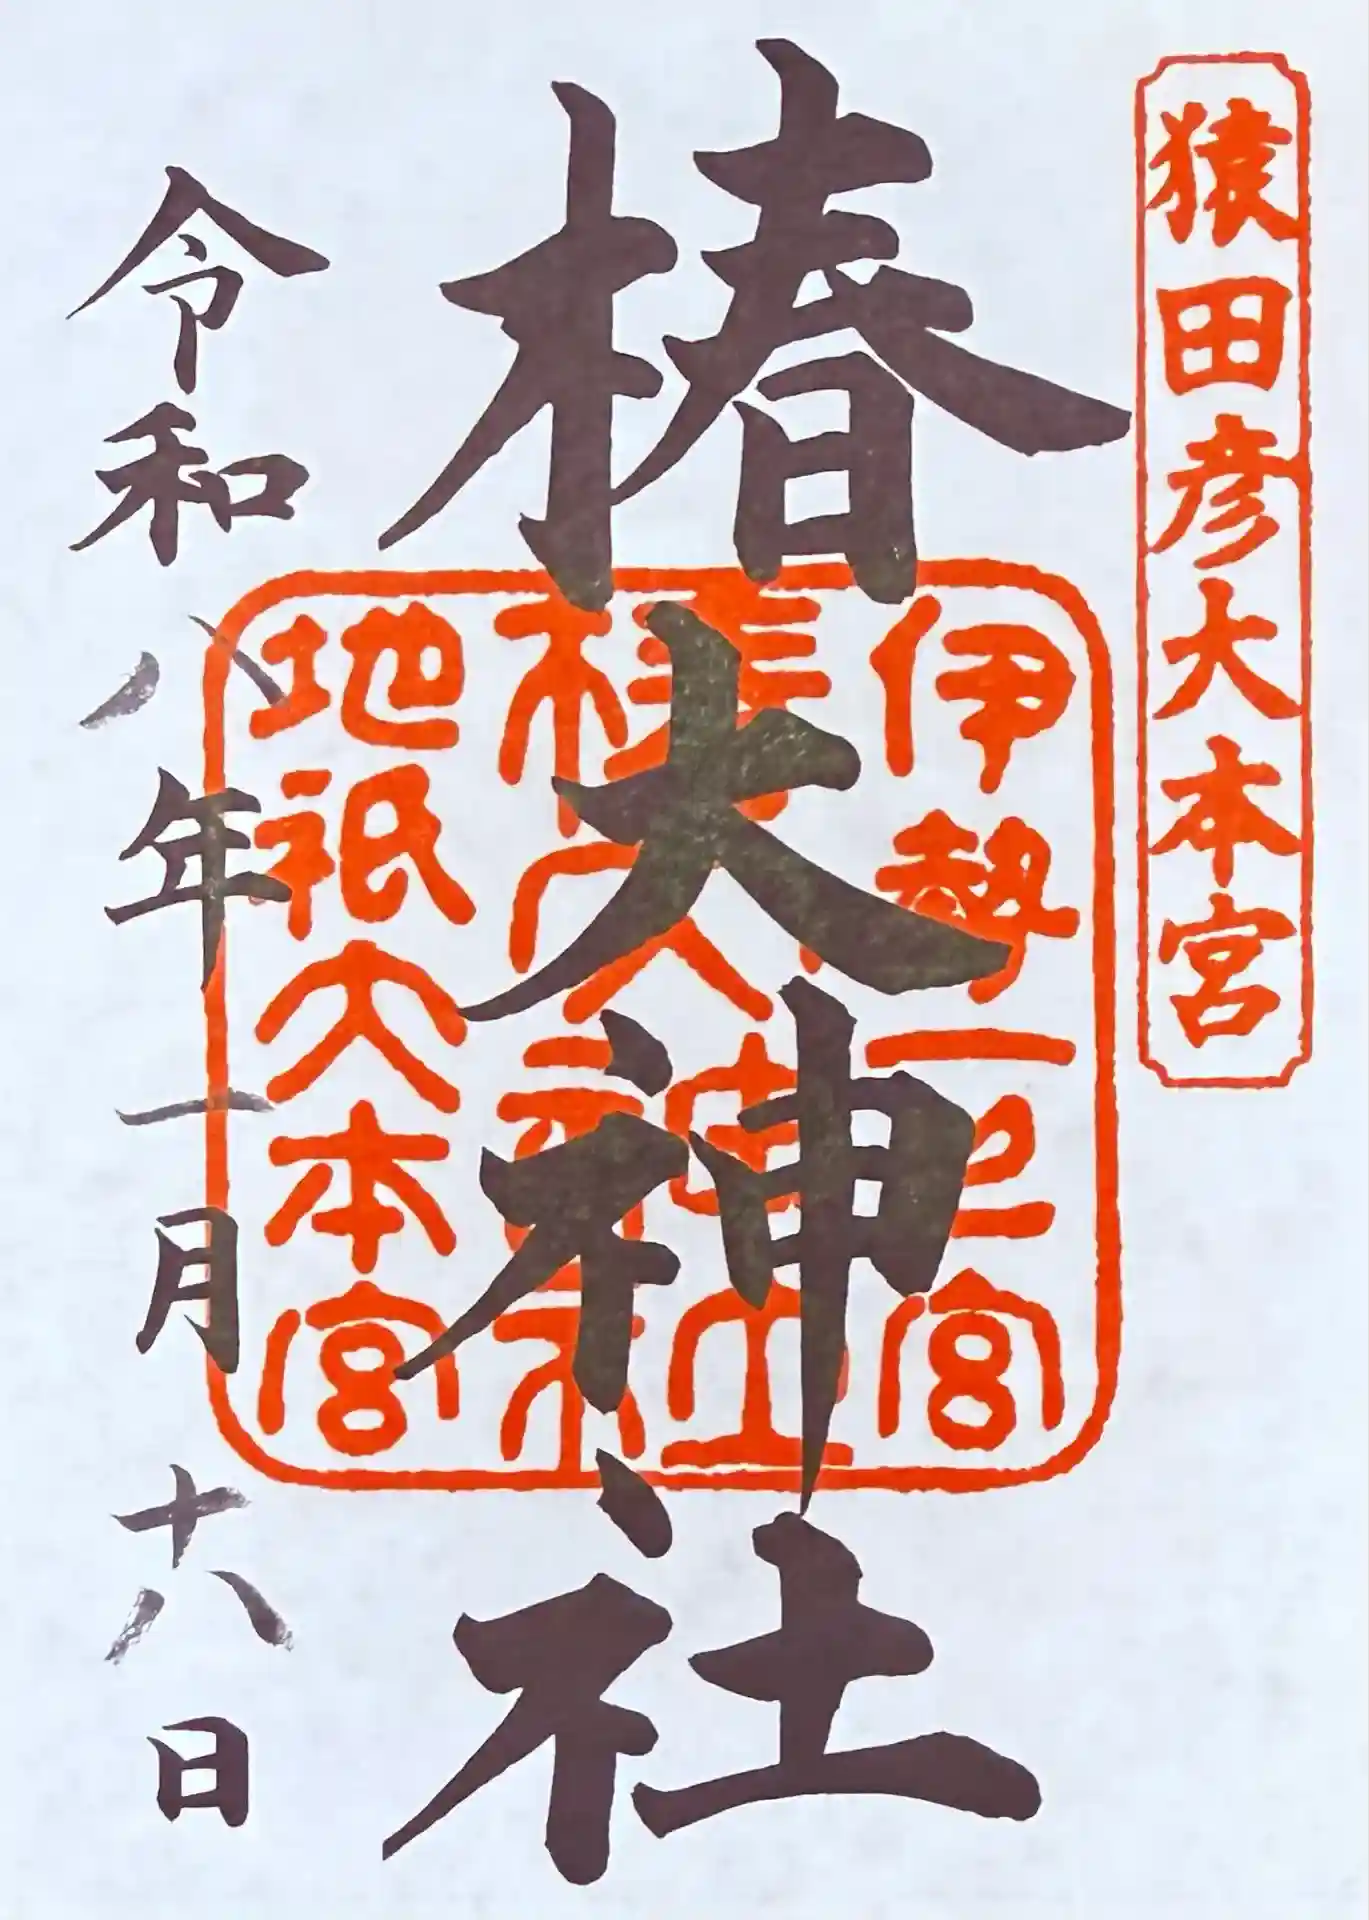 猿田彦大本宮
椿大神社
伊勢一之宮
椿大神社
地祇大本宮
令和八年一月十八日